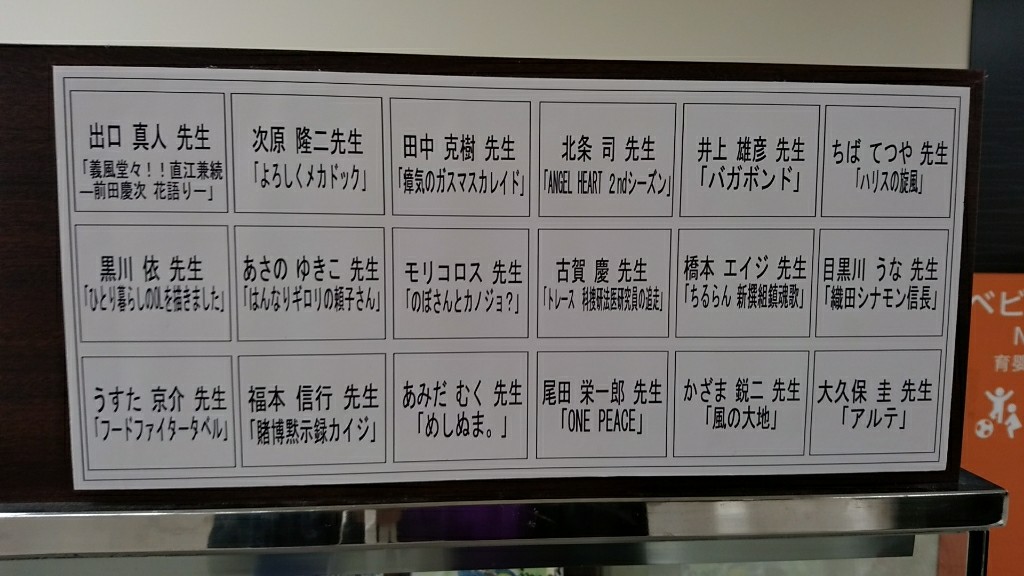 出口 真人 先生
「義風堂々！！直江兼続
―前田慶次 花語り―」
次原 隆二先生
「よろしくメカドック」
田中 克樹 先生
「瘴気のガスマスカレイド」
北条 司 先生
「ANGEL HEART 2ndシーズン」
井上 雄彦 先生
「バガボンド」
ちば てつや 先生
「ハリスの旋風」
黒川 依 先生
「ひとり暮らしのOLを描きました」
あさの ゆきこ 先生
「はんなりギロリの頼子さん」
モリコロス 先生
「のぼさんとカノジョ？」
古賀 慶 先生
「トレース 科捜研法医研究員の追走」
橋本 エイジ 先生
「ちるらん 新撰組鎮魂歌」
目黒川 うな 先生
「織田シナモン信長」
うすた 京介 先生
「フードファイタータベル」
福本 信行 先生
「賭博黙示録カイジ」
あみだ むく 先生
「めしぬま。」
尾田 栄一郎 先生
「ONE PEACE」
かざま 鋭二 先生
「風の大地」
大久保 圭 先生
「アルテ」
ベビ
育嬰